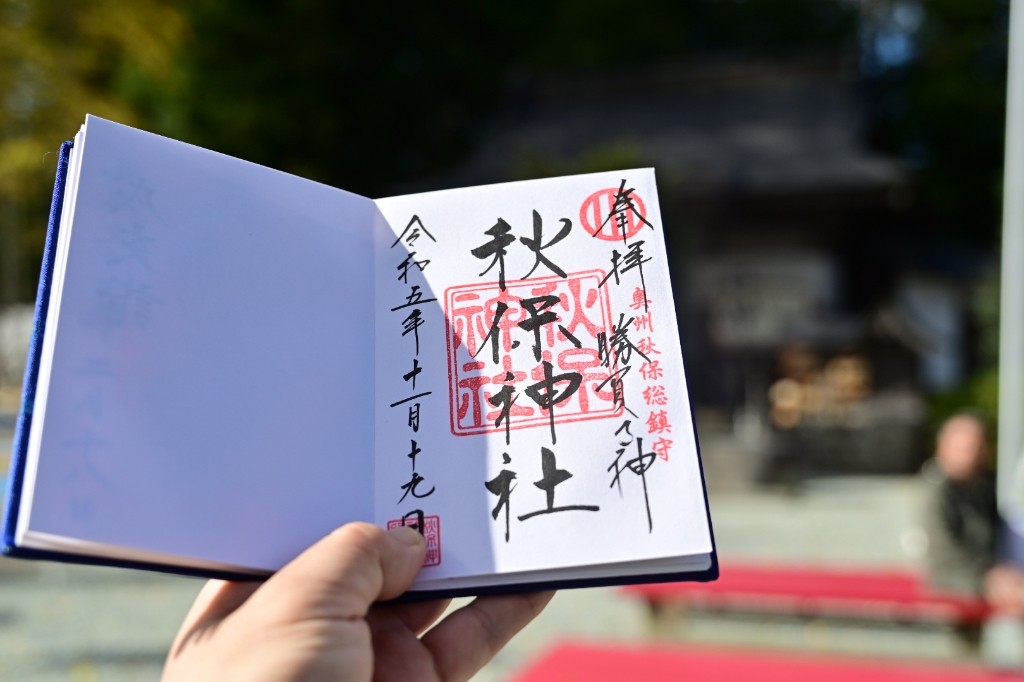 奉拝 勝負の神
奥州秋保総鎮守
秋保神社
秋保
神社
令和五年十一月十九日